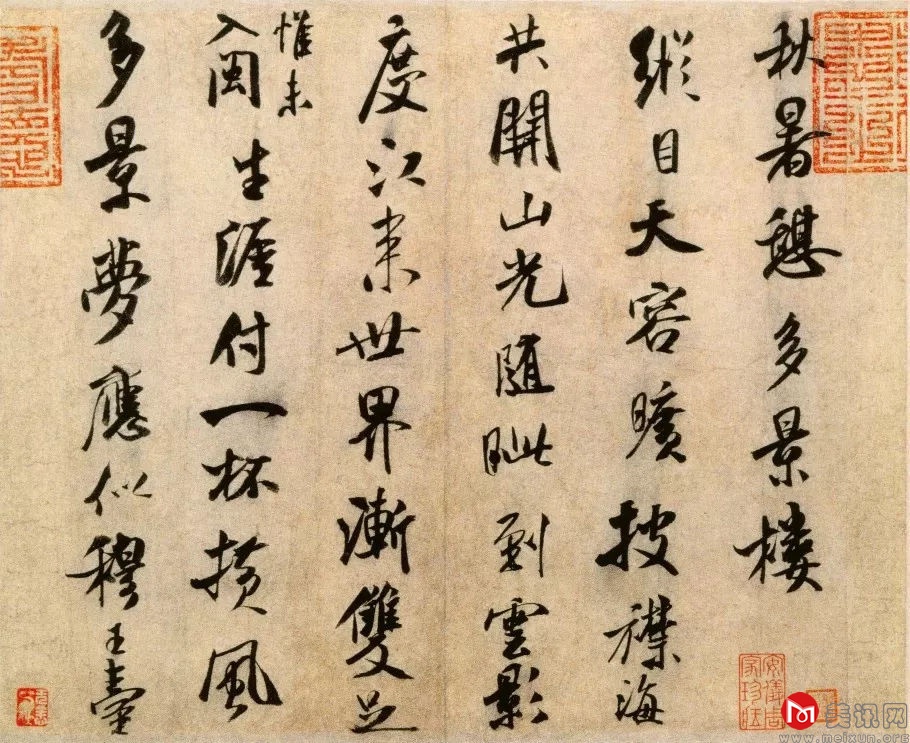 秋暑憩多景樓
縱目天容曠披襟海
共開山光隨眦到雲影
度江來世界漸雙足
惟未
入閩生涯付一杯橫風
多景夢應似穆王臺
美讯网
www.meixun.org